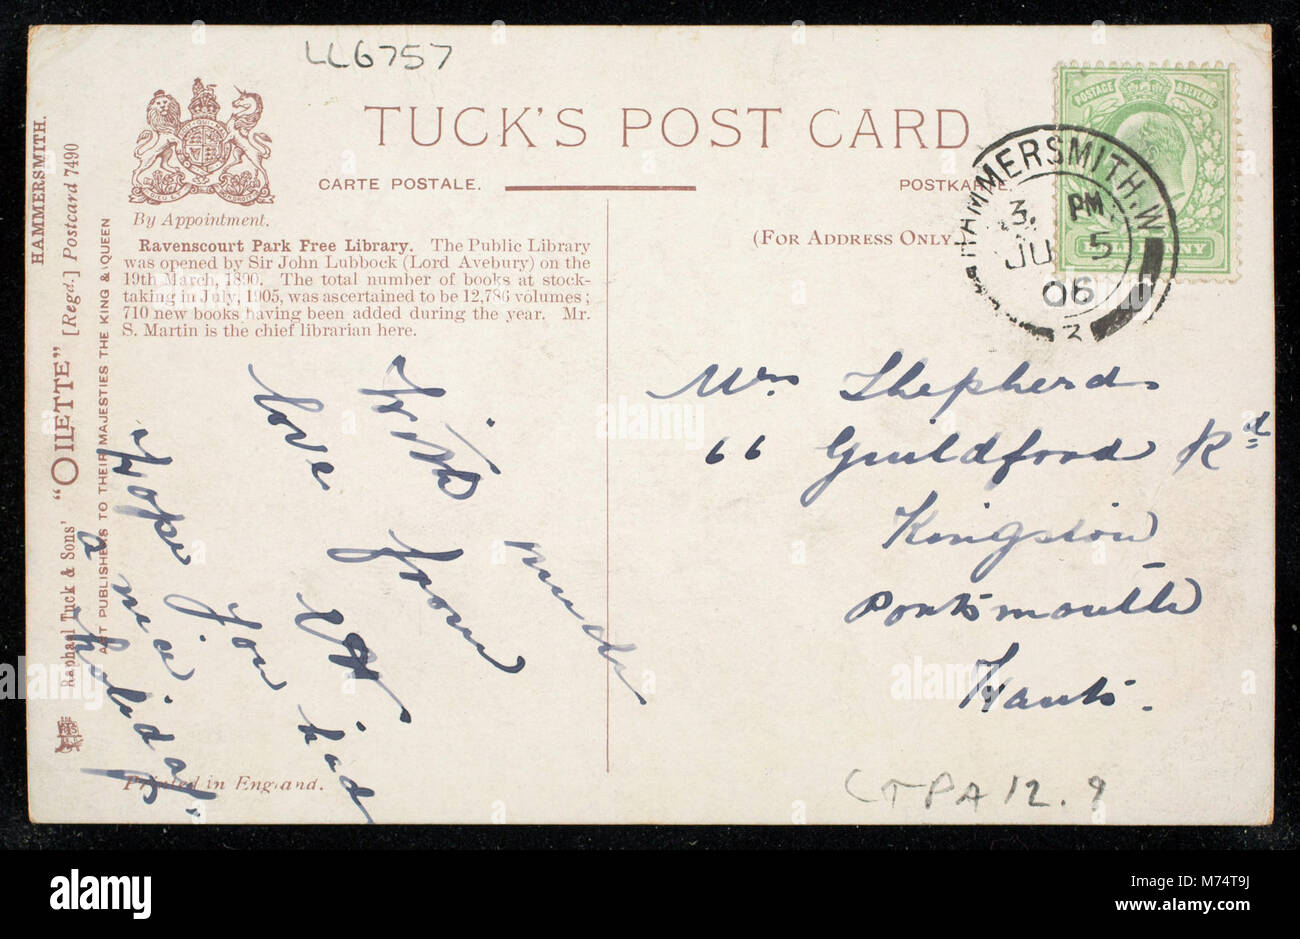 LL6757
TUCK'S POST CARD
CARTE POSTALE.
POSTKARTE.
By Appointment.
(FOR ADDRESS ONLY.)
Ravenscourt Park Free Library. The Public Library
was opened by Sir John Lubbock (Lord Avebury) on the
19th March, 1890. The total number of books at stock-
taking in July, 1905, was ascertained to be 12,786 volumes;
710 new books having been added during the year. Mr.
S. Martin is the chief librarian here.
HAMMERSMITH.
Raphael Tuck & Sons' "OILETTE" [Regd.] Postcard 7490
ART PUBLISHERS TO THEIR MAJESTIES THE KING & QUEEN
POSTAGE & REVENUE
HAMMERSMITH. W
3. PM
JU 5
06
3
With much
love from
Hope you had
a nice
holiday.
Mrs Shepherd
66 Guildford Rd
Kingston
Portsmouth
Hants.
Printed in England.
LTPA 12.9
alamy
Image ID: M74T9J
www.alamy.com